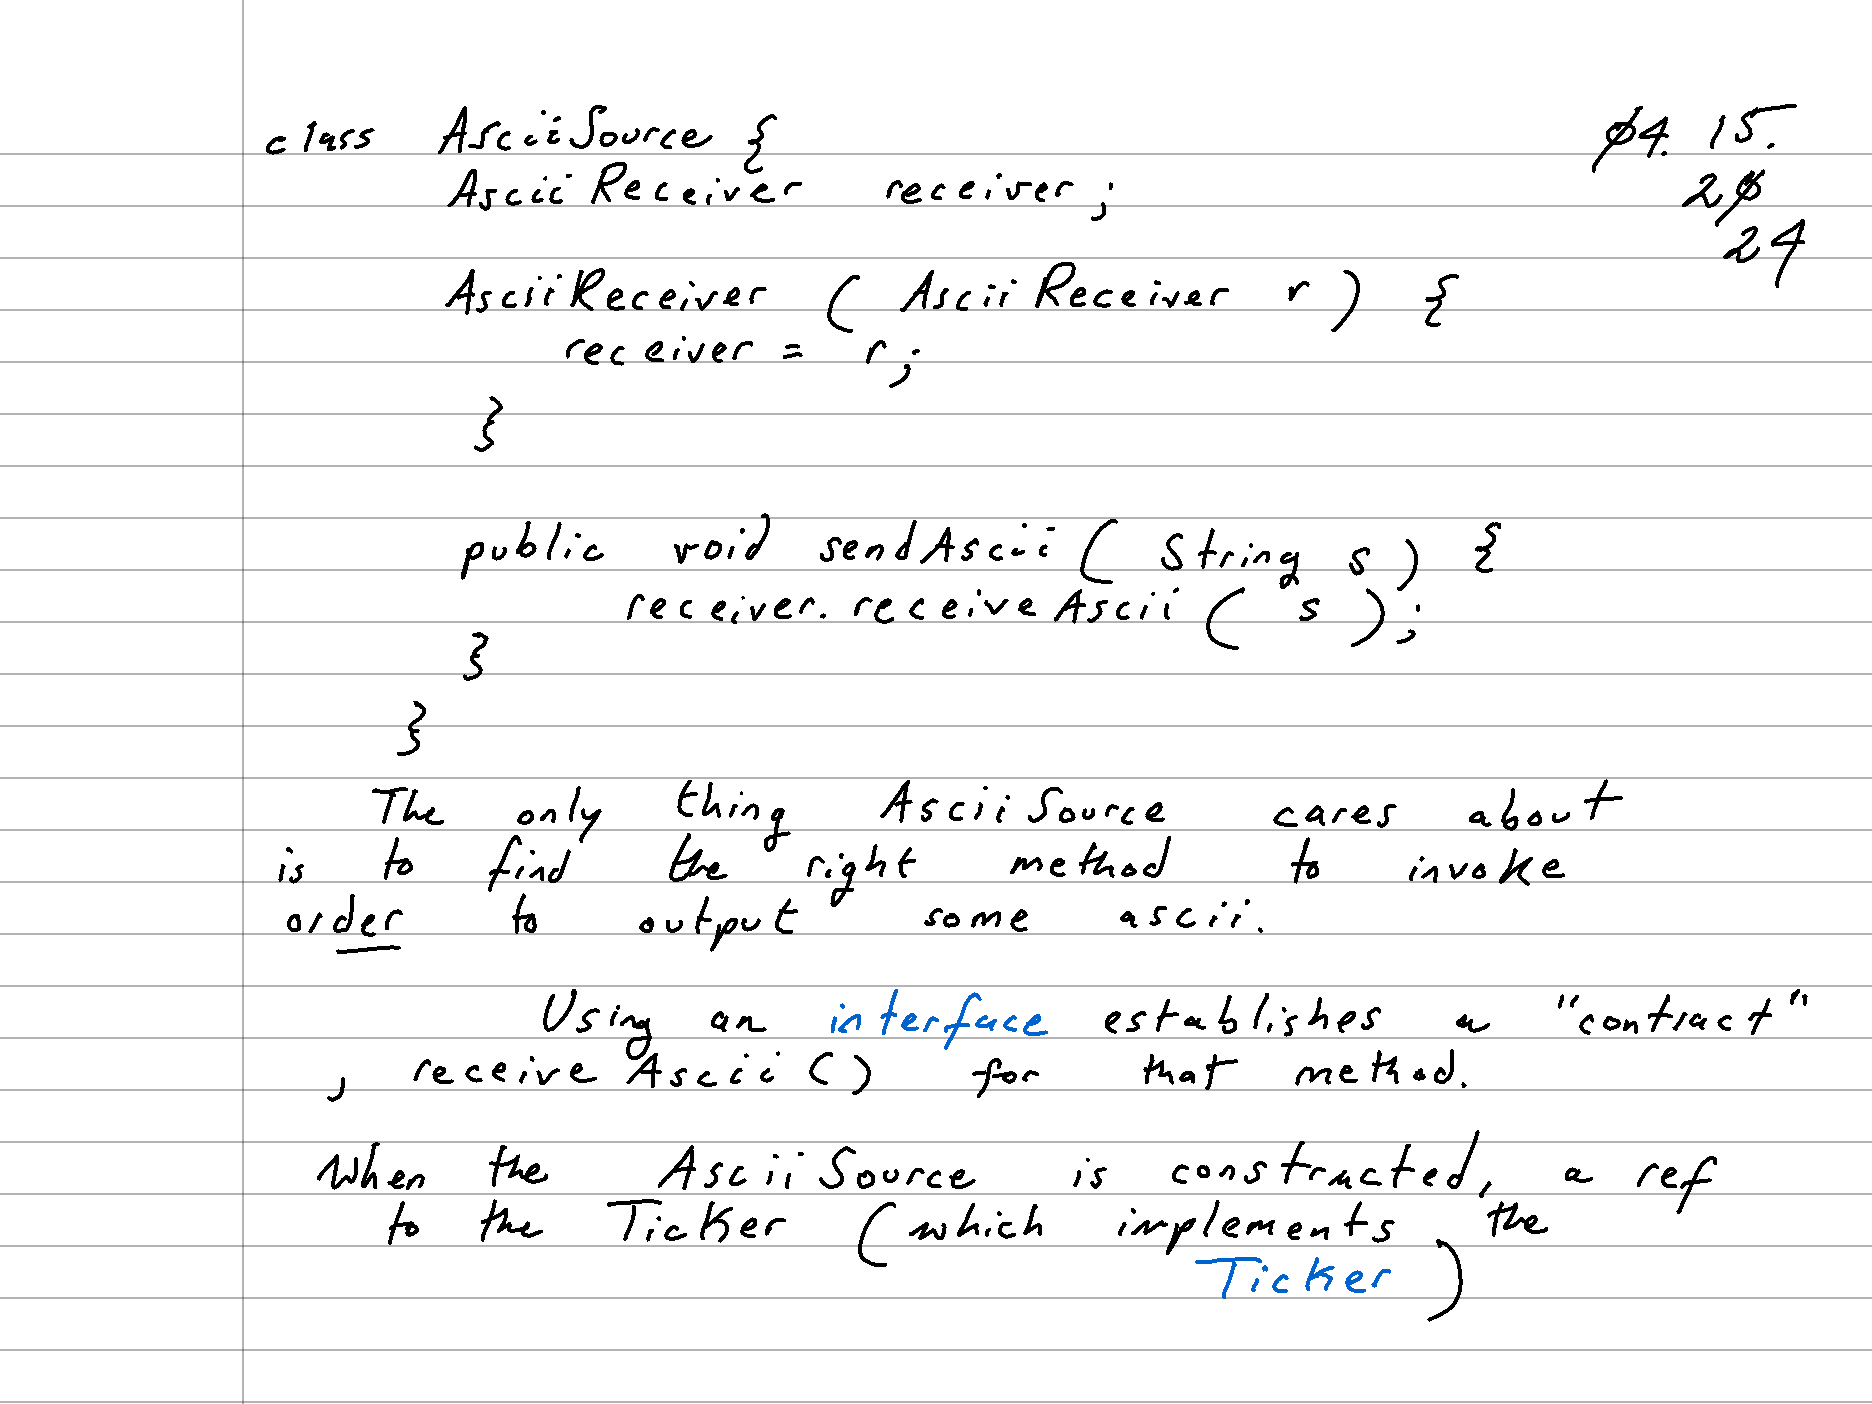 class AsciiSource {
ø4. 15.
AsciiReceiver receiver;
2ø
24
AsciiReceiver ( AsciiReceiver r ) {
receiver = r;
}
public void sendAscii ( String s ) {
receiver. receiveAscii ( s );
}
}
The only thing AsciiSource cares about
is to find the right method to invoke
order to output some ascii.
Using an interface establishes a "contract"
, receiveAscii () for that method.
When the AsciiSource is constructed, a ref
to the Ticker ( which implements the
Ticker )